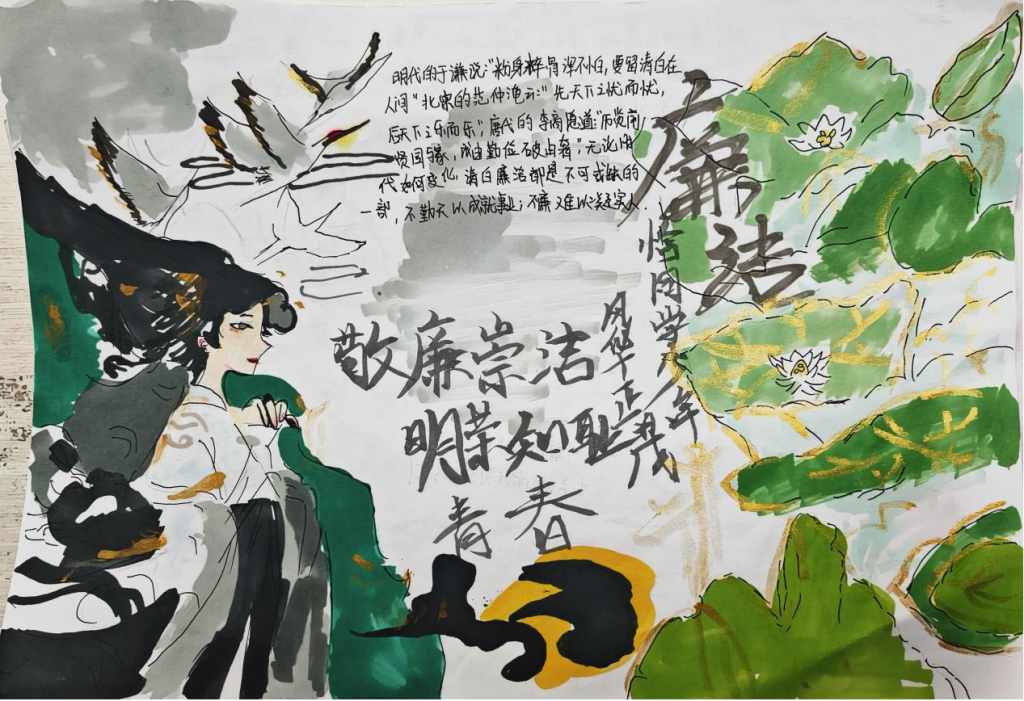 明代的于谦说:"粉身粹骨浑不怕,要留清白在
人间"北宋的范仲淹云:"先天下之忧而忧,
后天下之乐而乐";唐代的李商隐道:"历览前
贤国家,成由勤俭破由奢"无论时
代如何变化,清白廉洁都是不可或缺的
一部,不勤无以成就事业;不廉难以
廉洁
恰同学少年
风华正茂
敬廉崇洁
明荣知耻
青春